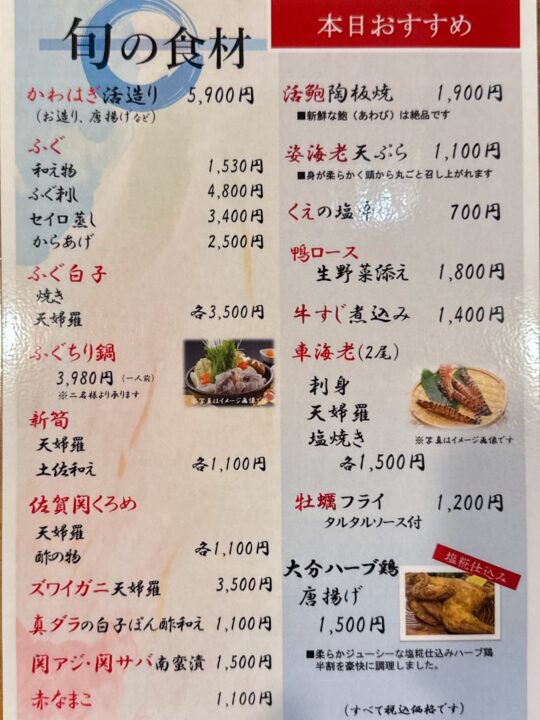 旬の食材
かわはぎ活造り 5,900円
（お造り、唐揚げなど）
ふぐ
和え物 1,530円
ふぐ刺し 4,800円
セイロ蒸し 3,400円
からあげ 2,500円
ふぐ白子
焼き
天婦羅 各3,500円
ふぐちり鍋
3,980円（一人前）
※二名様より承ります
※写真はイメージ画像です
新筍
天婦羅
土佐和え 各1,100円
佐賀関くろめ
天婦羅
酢の物 各1,100円
ズワイガニ天婦羅 3,500円
真ダラの白子ぽん酢和え 1,100円
関アジ・関サバ南蛮漬 1,500円
赤なまこ 1,100円
本日おすすめ
活鮑陶板焼 1,900円
■新鮮な鮑（あわび）は絶品です
姿海老天ぷら 1,100円
■身が柔らかく頭から丸ごと召し上がれます
くえの塩 700円
鴨ロース
生野菜添え 1,800円
牛すじ煮込み 1,400円
車海老(2尾)
刺身
天婦羅
塩焼き
各1,500円
※写真はイメージ画像です
牡蠣フライ 1,200円
タルタルソース付
大分ハーブ鶏
唐揚げ
1,500円
塩糀仕込み
■柔らかジューシーな塩糀仕込みハーブ鶏
半割を豪快に調理しました。
（すべて税込価格です）